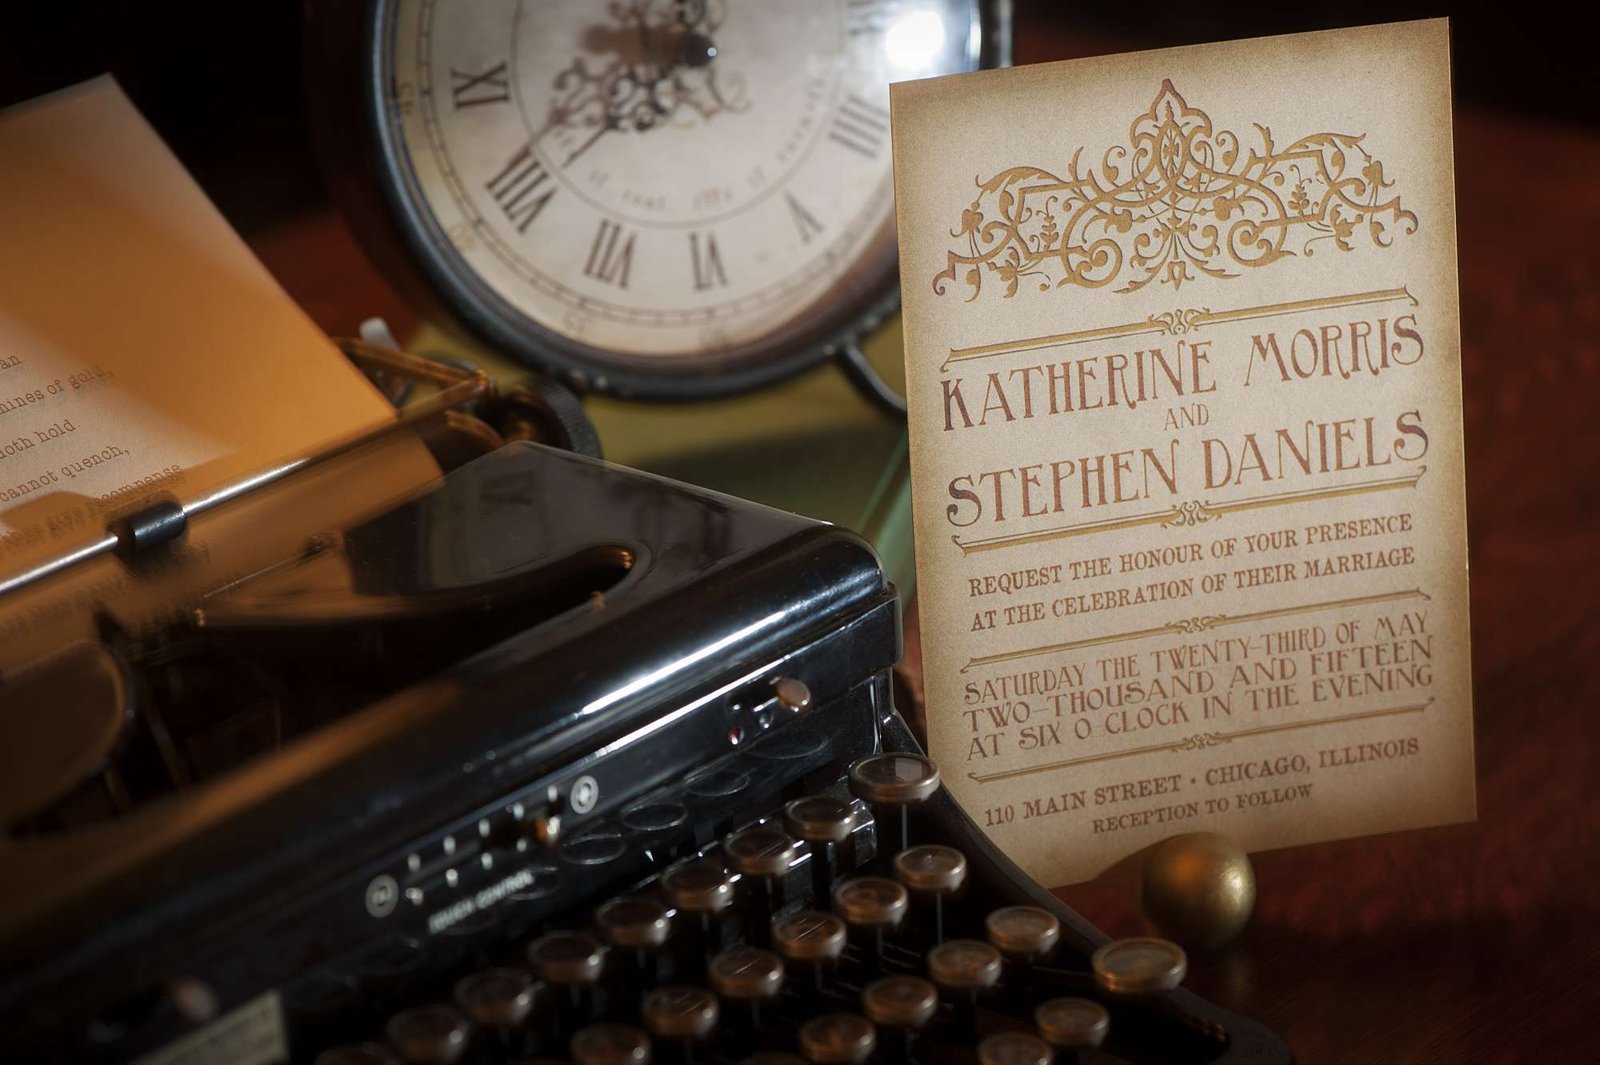 an
mines of gold,
doth hold
cannot quench,
recompense
IX
VIII
VII
VI
V
IIII
TOUCH CONTROL
KATHERINE MORRIS
AND
STEPHEN DANIELS
REQUEST THE HONOUR OF YOUR PRESENCE
AT THE CELEBRATION OF THEIR MARRIAGE
SATURDAY THE TWENTY-THIRD OF MAY
TWO-THOUSAND AND FIFTEEN
AT SIX O CLOCK IN THE EVENING
110 MAIN STREET • CHICAGO, ILLINOIS
RECEPTION TO FOLLOW